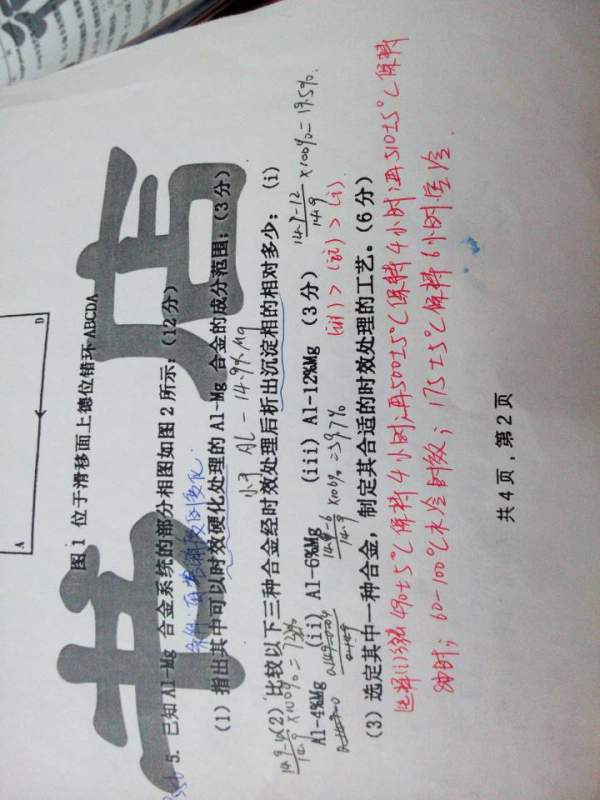 A
D
图 1 位于滑移面上德位错环 ABCDA
5. 已知 Al-Mg 合金系统的部分相图如图 2 所示:(12 分)
(1) 指出其中可以时效硬化处理的 Al-Mg 合金的成分范围;(3 分)
小于 AL - 14.9% Mg
(2) 比较以下三种合金经时效处理后析出沉淀相的相对多少: (i)
Al-4%Mg (ii) Al-6%Mg (iii) Al-12%Mg (3 分)
14.9-12/14.9 ×100% = 19.5%
(iii) > (ii) > (i)
(3) 选定其中一种合金,制定其合适的时效处理的工艺。(6 分)
490±5℃保释 4 小时;再500±5℃保释 4 小时;再 510±5℃保释
8小时; 60-100℃水冷时效; 175±5℃保释 6小时空冷.
共 4 页,第 2 页